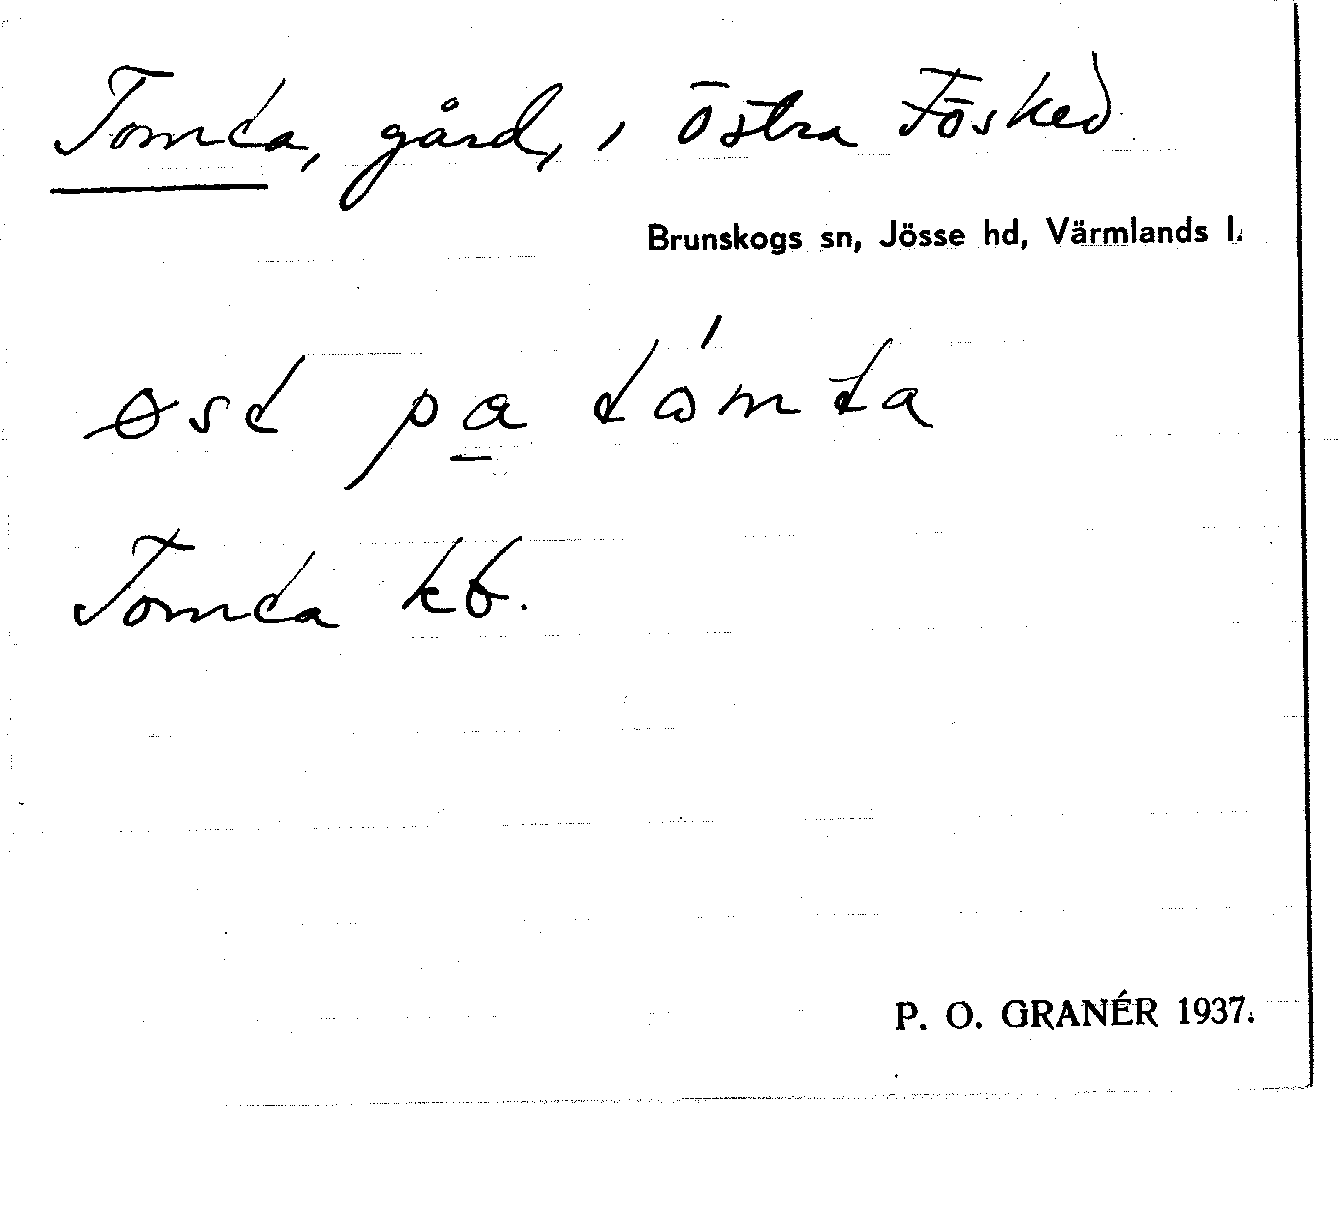 Tomta, gård, i Östra Fösked
Brunskogs sn, Jösse hd, Värmlands l.
øst pa tómta
Tomta kb.
P. O. GRANÉR 1937.